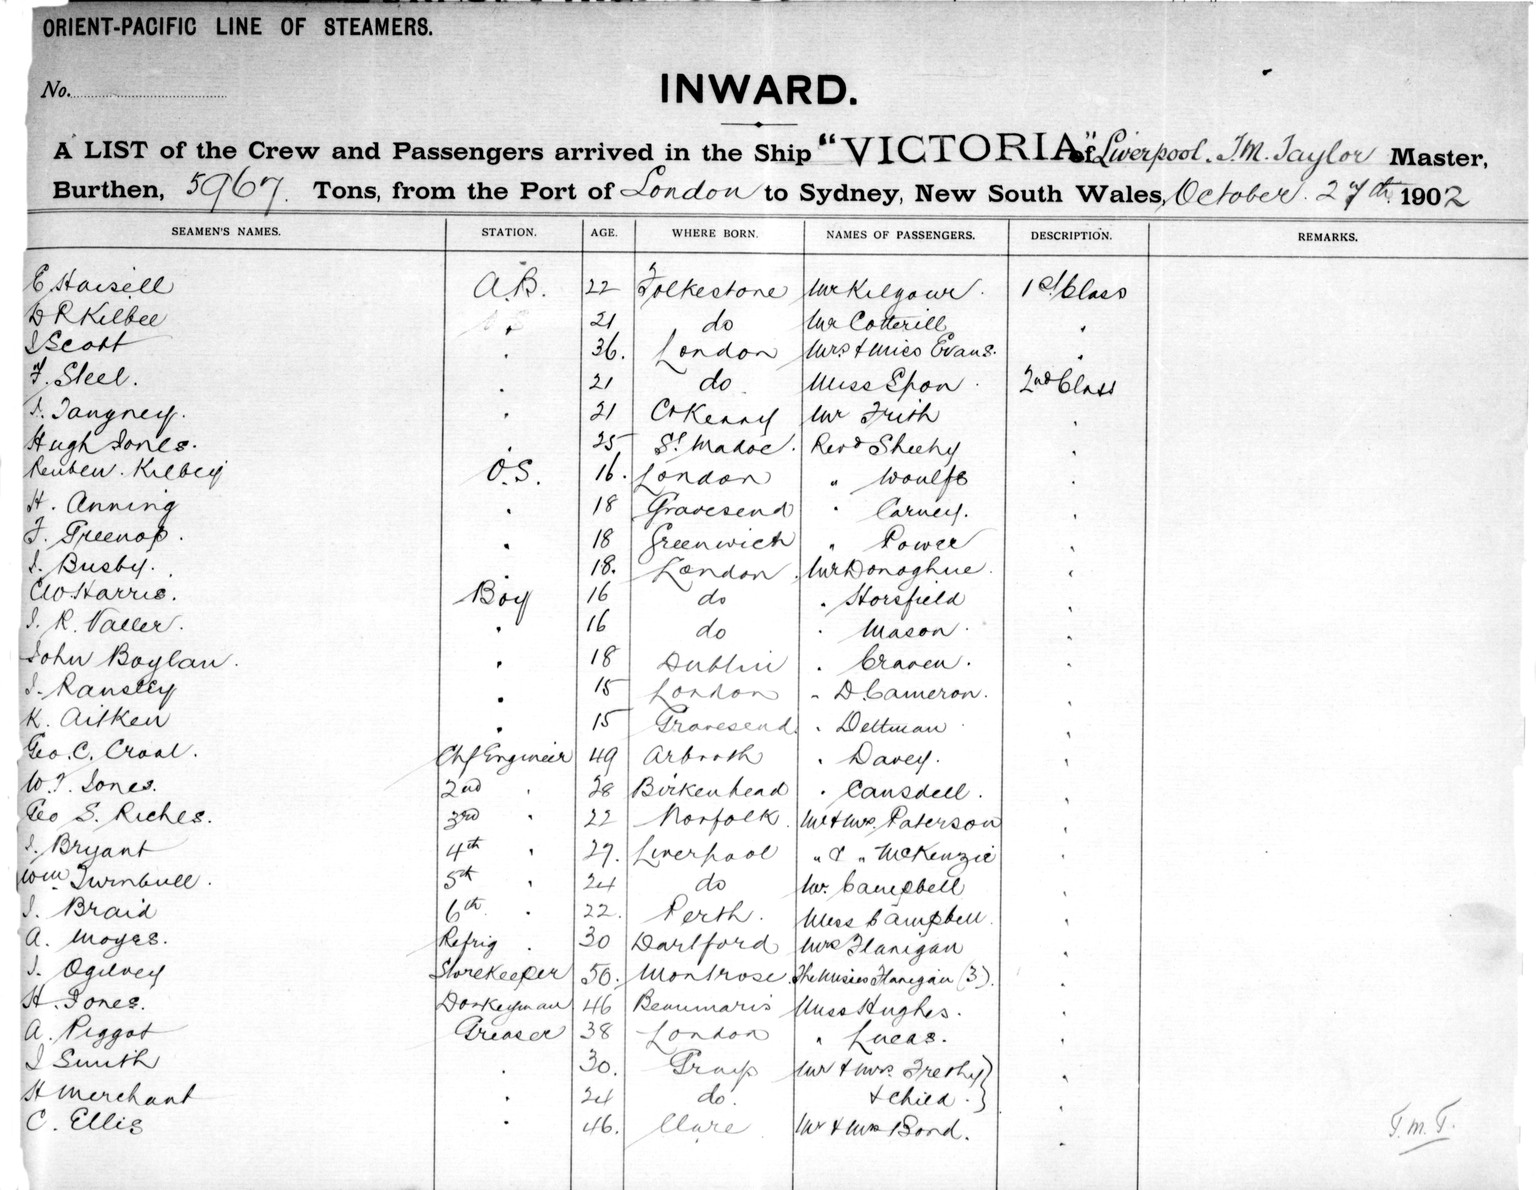 ORIENT-PACIFIC LINE OF STEAMERS.
No.
INWARD.
A LIST of the Crew and Passengers arrived in the Ship "VICTORIA" of Liverpool. T.M. Taylor Master,
Burthen, 5967. Tons, from the Port of London to Sydney, New South Wales, October. 27th. 1902
SEAMEN'S NAMES. STATION. AGE. WHERE BORN. NAMES OF PASSENGERS. DESCRIPTION. REMARKS.
E Haisell A.B. 22 Folkestone Mr Kilgour. 1st Class
D R Kilbee " 21 do Mr Cotterill "
J Scott " 36. London Mrs & Miss Evans. "
F. Steel. " 21 do Miss Epon 2nd Class
J. Tangney. " 21 Co Kerry Mr Frith "
Hugh Jones. " 25 St Madoc. Revd Sheehy "
Reuben. Kilbey O.S. 16. London " Woulfe "
H. Anning " 18 Gravesend " Carney. "
F. Greenop. " 18 Greenwich " Power "
J. Busby. " 18. London. Mr Donoghue. "
C W Harris. Boy 16 do " Horsfield "
J. R. Valler. " 16 do " Mason. "
John Boylan. " 18 Dublin " Craven. "
J. Ransley " 15 London " D. Cameron. "
K. Aitken " 15 Gravesend. " Dettman "
Geo. C. Croal. Chf Engineer 49 Arbroath " Davey. "
W. J. Jones. 2nd " 28 Birkenhead " Cansdell. "
Geo S. Riches. 3rd " 22 Norfolk. Mr & Mrs. Paterson "
J. Bryant 4th " 27. Liverpool " & " McKenzie "
Wm Turnbull. 5th " 24 do Mr. Campbell "
J. Braid 6th " 22. Perth. Miss Campbell. "
A. Moyes. Refrig " 30 Dartford Mrs Flanigan "
J. Ogilvey Storekeeper 50. Montrose. The Misses Flanigan (3). "
H. Jones. Donkeyman 46 Beaumaris Miss Hughes. "
A. Piggot Greaser 38 London " Lucas. "
J Smith " 30. Grays Mr & Mrs. Frethy } "
H Merchant " 24 do. & Child. } "
C. Ellis " 46. Clare Mr & Mrs Bond. "
T.M.T.